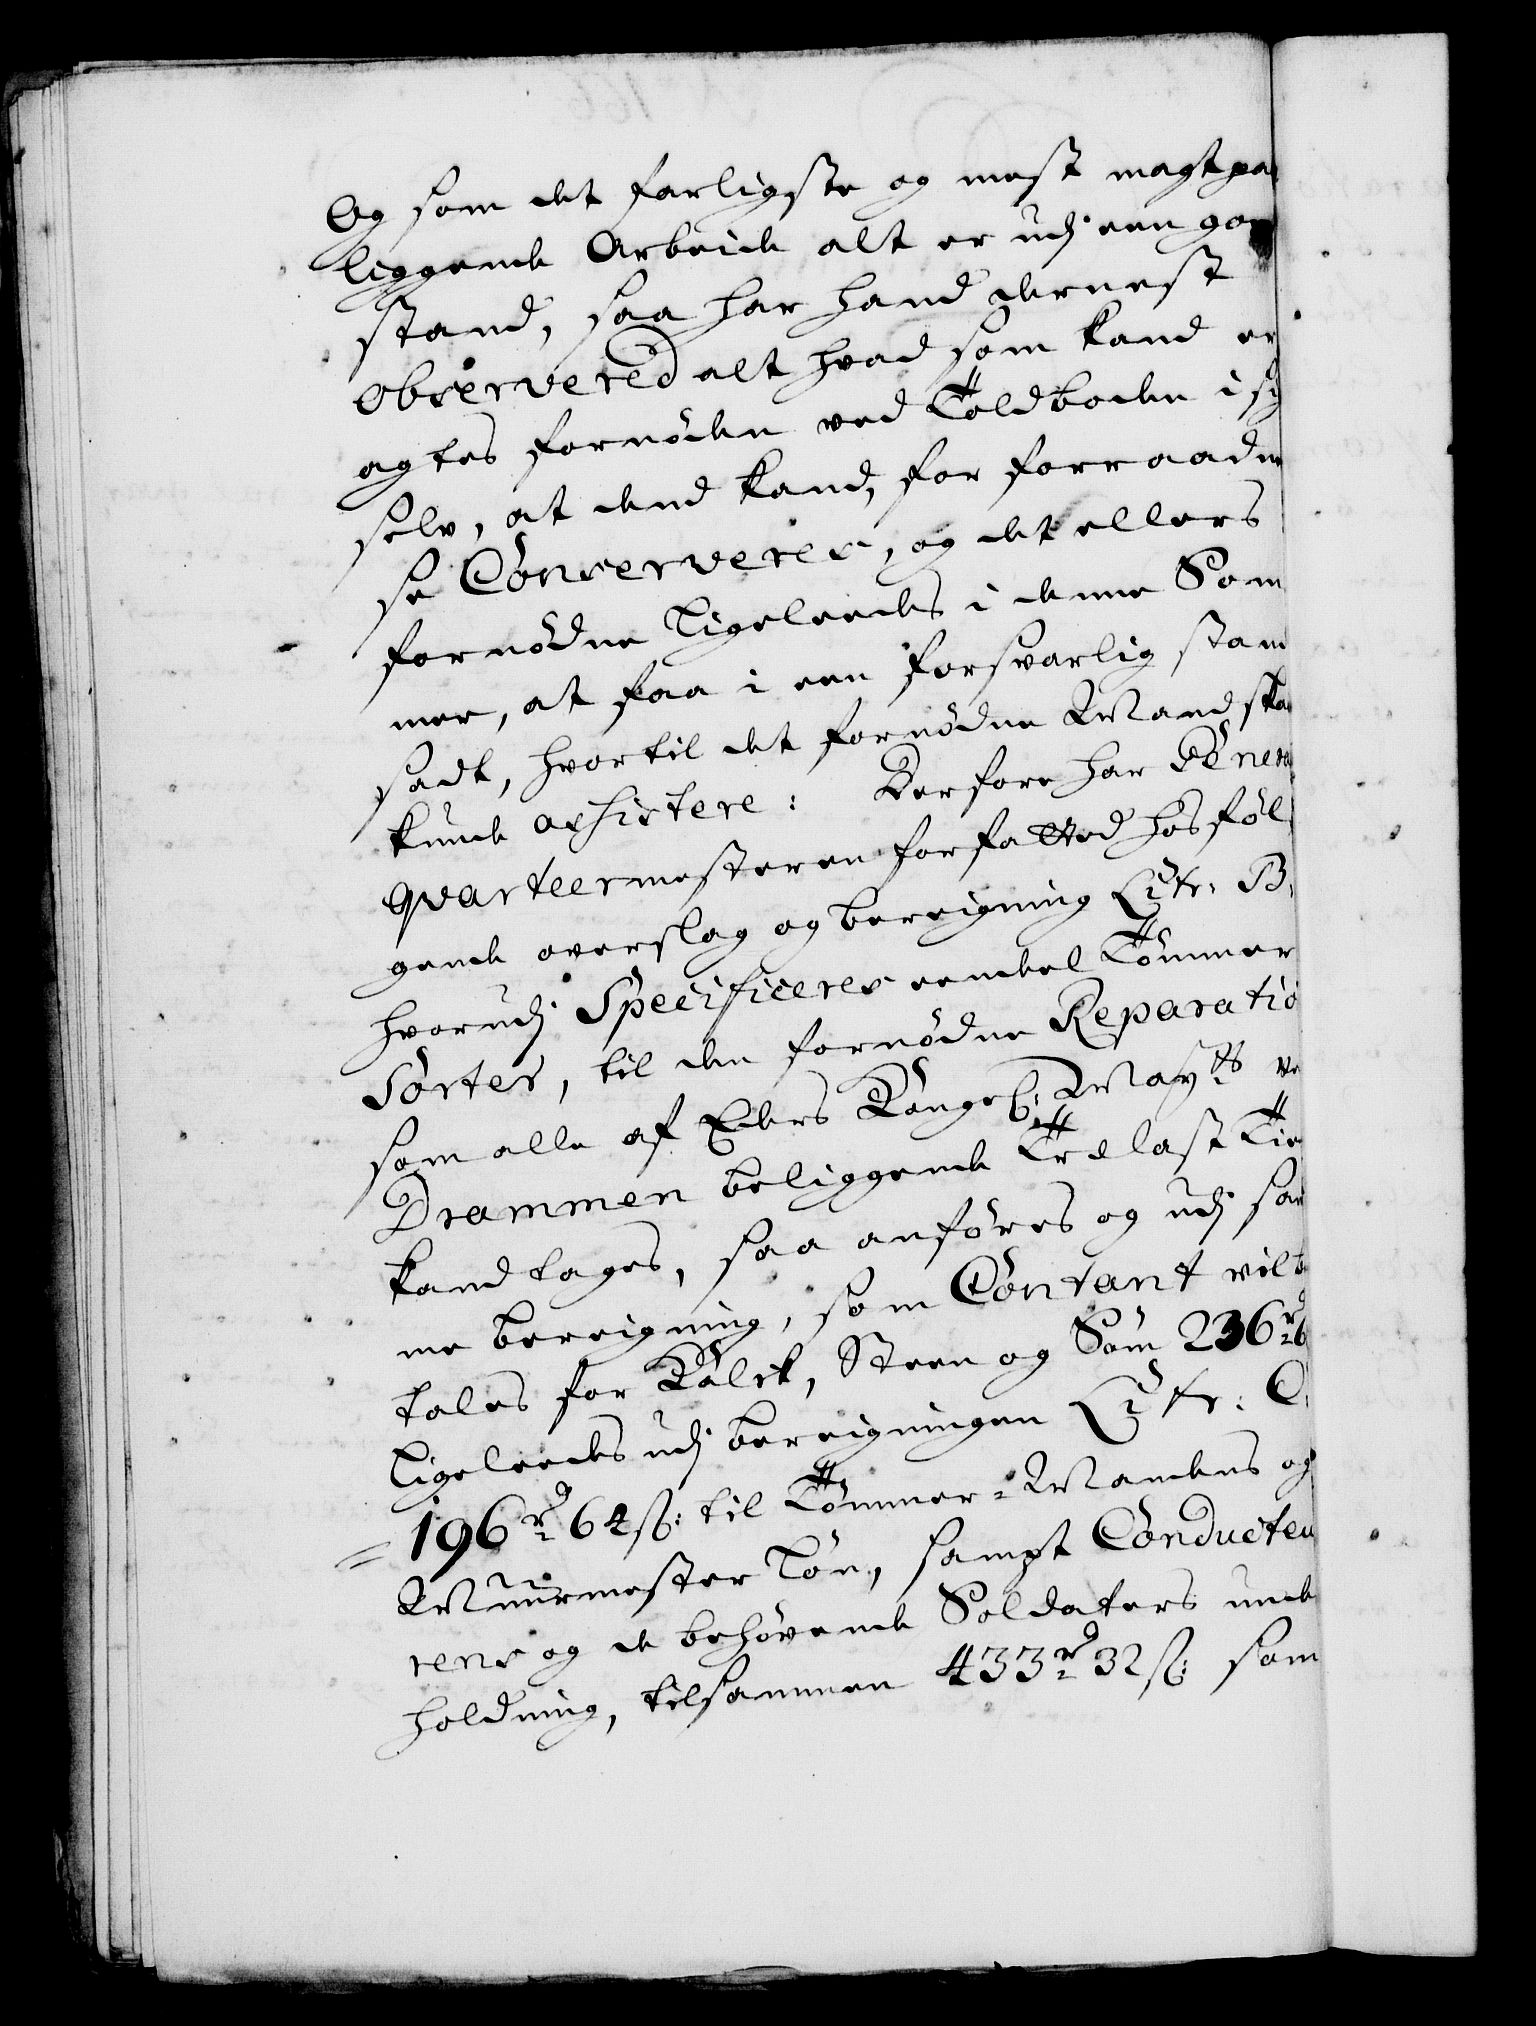 Og som det farligste og mest magtpaa
liggende Arbeide alt er udj een god
stand, saa har hand dernest
observered alt hvad som kand er
agtes fornöden ved Toldboden i sig
selv, at dend kand, for forraadnel
se Conserveres, og det ellers
fornödne ligeleedes i denne Som
mer, at faa i een forsvarlig stand
sadt, hvortil det fornödne Mandskab
kunde assistere: Derfore har General
qvarteermesteren forfatted hosföl
gende overslag og bereigning Litr: B.
hvorudj Specificeres eendeel Tömmer
Sorter, til den fornödne Reparation
som alle af Eders Kongel: Mayts ved
Drammen beliggende Trelast Tiende
kand tages, saa anföres og udj sam
me bereigning, som Contant vil be
tales for Kalck, Steen og Söm 236 rd 64
ligeleedes udj bereigningen Litr: C.
= 196 rd 64 ß: til Tömmer-Mandens og
Muurmester lön, sampt Conducteu
rens og de behövende Soldaters unde
holdning, tilsammen 433 rd 32 ß: som